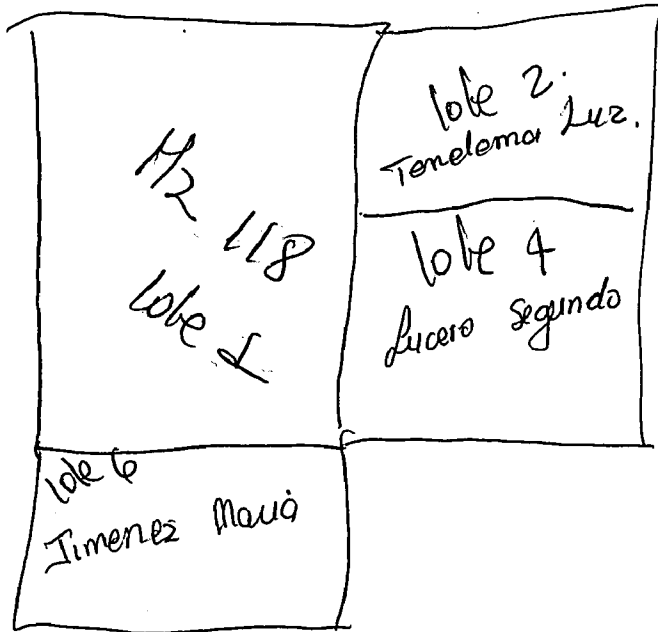 Mz 118
lote 1
lote 2.
Tendema Luz.
lote 4
Lucero Segundo
lote 6
Jimenez Maria